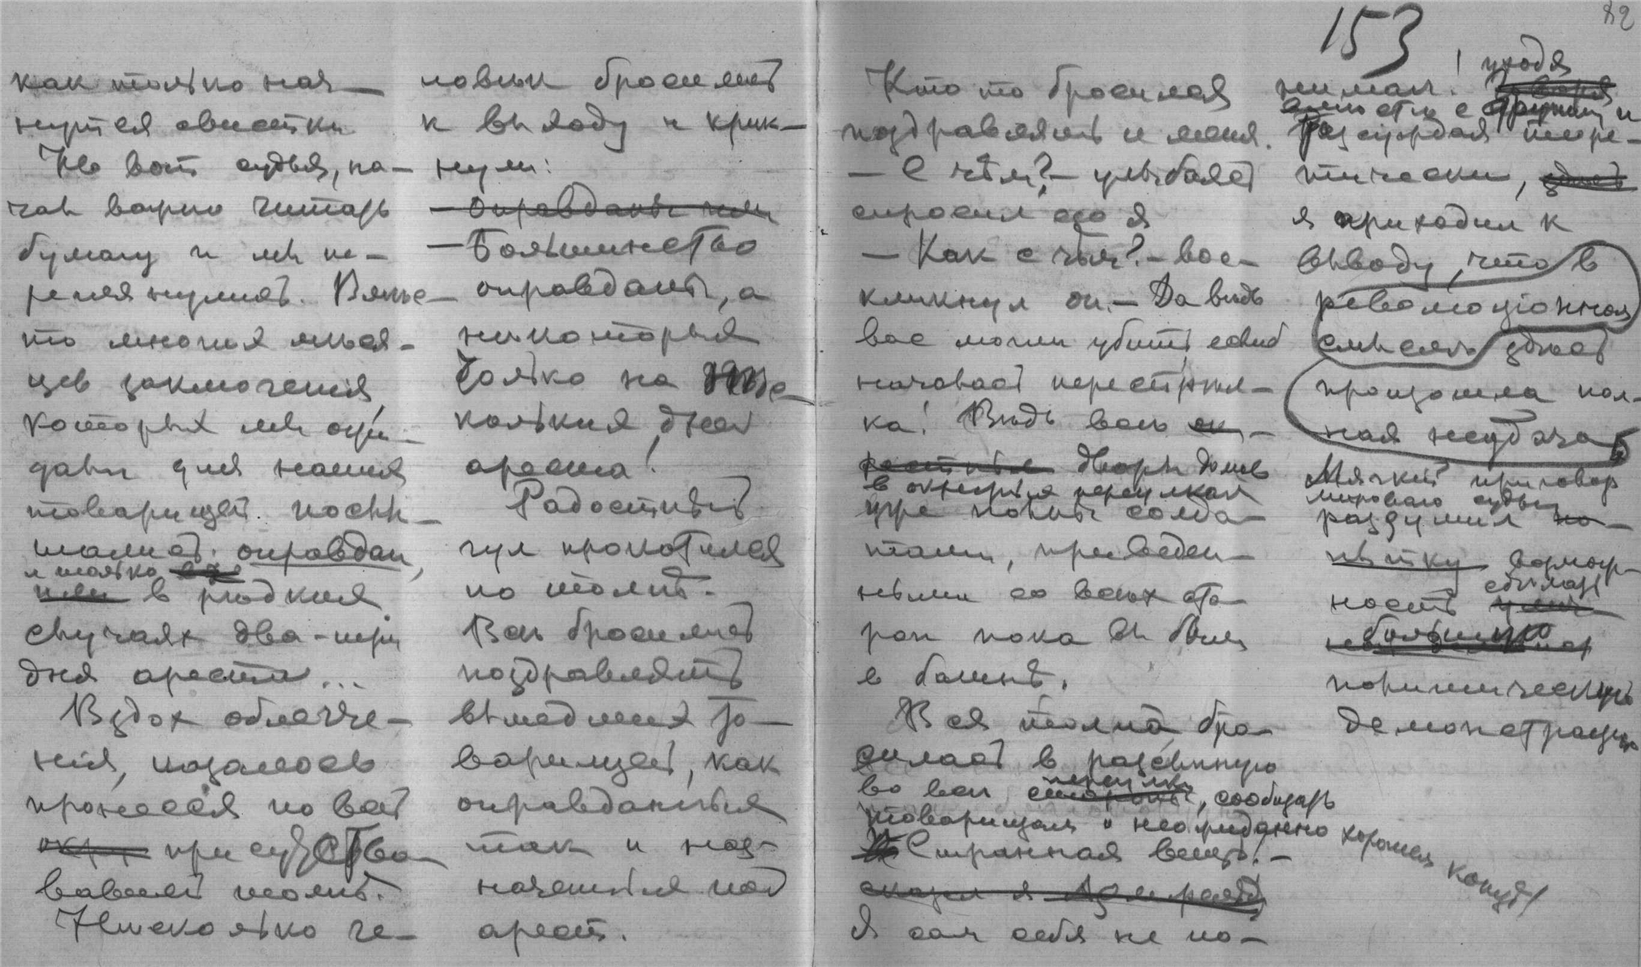 как только нач-
нутся свистки
Но вот судья, на-
чал вяло читать
бумагу и мы пе-
реглянулись. Вмѣс-
то многих мѣся-
цев заключения,
которых мы ожи-
дали для наших
товарищей, послы-
шалось: оправдан,
и только
или в редких
случаях два-три
дня ареста...
Вздох облегче-
нія, казалось
пронесся по всей
присутство-
вавшей толпѣ.
Нѣсколько че-
ловѣк бросились
к выходу и крик-
нули:
- Оправданы или
- Большинство
оправданы, а
нѣкоторыя
только на нѣс-
колько дней
ареста!
Радостный
гул прокатился
по толпѣ.
Все бросились
поздравлять
вышедших то-
варищей, как
оправданных
так и наз-
наченных под
арест.
153
82
Кто то бросился
поздравлять и меня.
- С чѣм? - улыбаясь
спросил его я
- Как с чѣм? - вос-
кликнул он. - Да вѣдь
вас могли убить, если б
началась перестрѣл-
ка! Вѣдь всѣ ок-
рестные дворы домов
в окрестных переулках
были полны солда-
тами, приведен-
ными со всѣх сто-
рон пока вы были
в башнѣ.
Вся толпа бро-
силась в разсыпную
во все стороны, сообщать
переулки
товарищам о неожиданно хорошем концѣ!
Странная вещь! -
сказал я
Я сам себя не по-
нимал! уходя
вместе с другими и
Разсуждая теоре-
тически,
я приходил к
выводу, что в
революціонном
смыслѣ здѣсь
произошла пол-
ная неудача
Мягкий приговор
мирового судьи
разрушил по-
пытку
сдѣлать
большую
политическую
демонстрацію